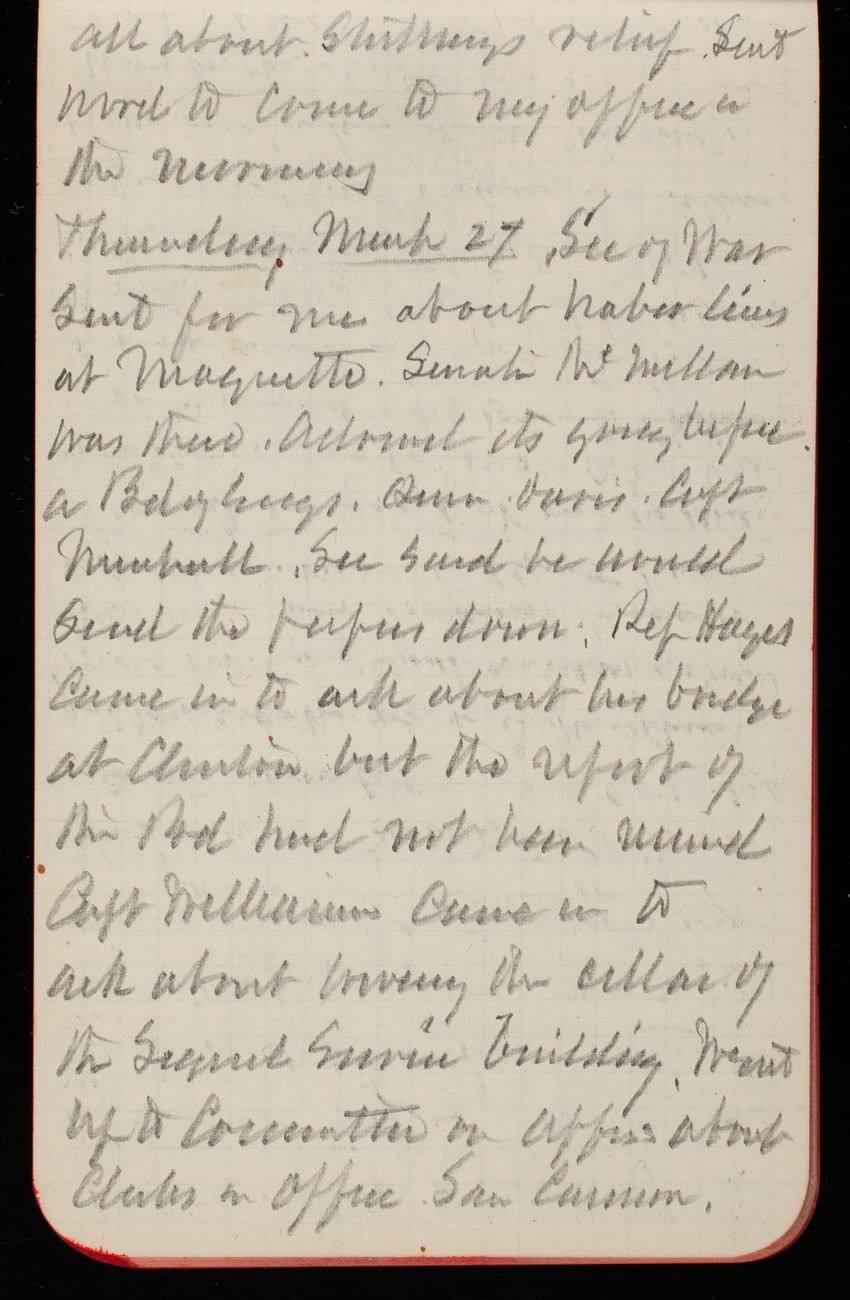 all about Stickneys relief. Sent
word to come to my office in
the morning
Thursday March 27. Sec of War
sent for me about harbor lines
at Marquette. Senator McMillan
was there. Advised its going before
a Bd of Engs. Davis. Capt
Sec said he would
send the papers down. Rep Hayes
came in to ask about his bridge
at Clinton but the report of
the Bd had not been received
Capt Williams came in to
ask about lowering the cellar of
the Signal Service building. Went
up to Committee on Approps about
Clerks in office. Saw Cannon.